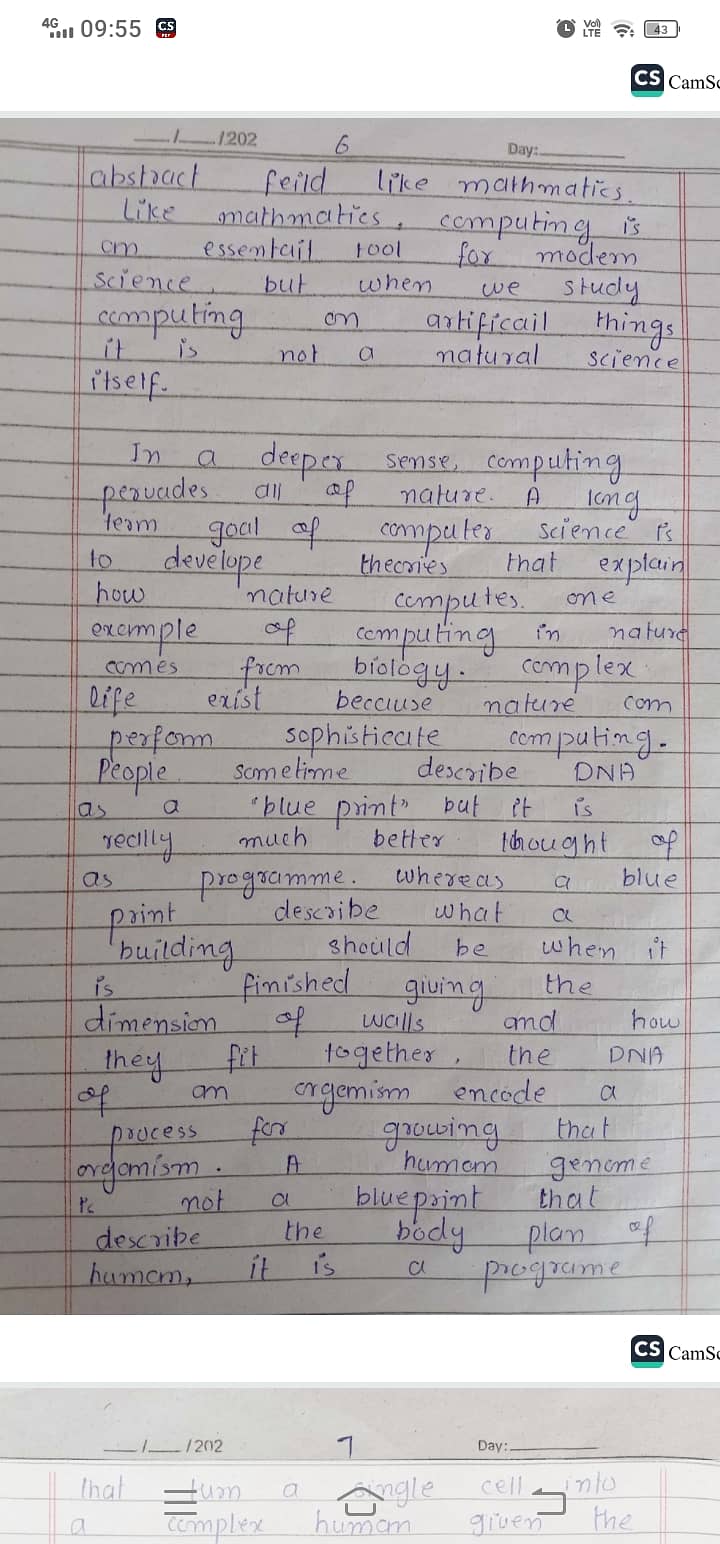 4G 09:55 CS PDF Vo) LTE 43
CS CamSc
__/__/202 6 Day:
abstract feild like mathmatics.
Like mathmatics, computing is
an essentail tool for modern
science, but when we study
computing on artificail things
it is not a natural science
itself.
In a deeper sense, computing
pervades all of nature. A long
term goal of computer science is
to develope theories that explain
how nature computes. one
example of computing in nature
comes from biology. complex
life exist because nature can
perform sophisticate computing.
People sometime describe DNA
as a "blue print" but it is
really much better thought of
as programme. whereas a blue
print describe what a
building should be when it
is finished giving the
dimension of walls and how
they fit together, the DNA
of an organism encode a
process for growing that
organism. A human genome
is not a blueprint that
describe the body plan of
human, it is a programe
CS CamSc
__/__/202 7 Day:
that turn a single cell into
a complex human given the